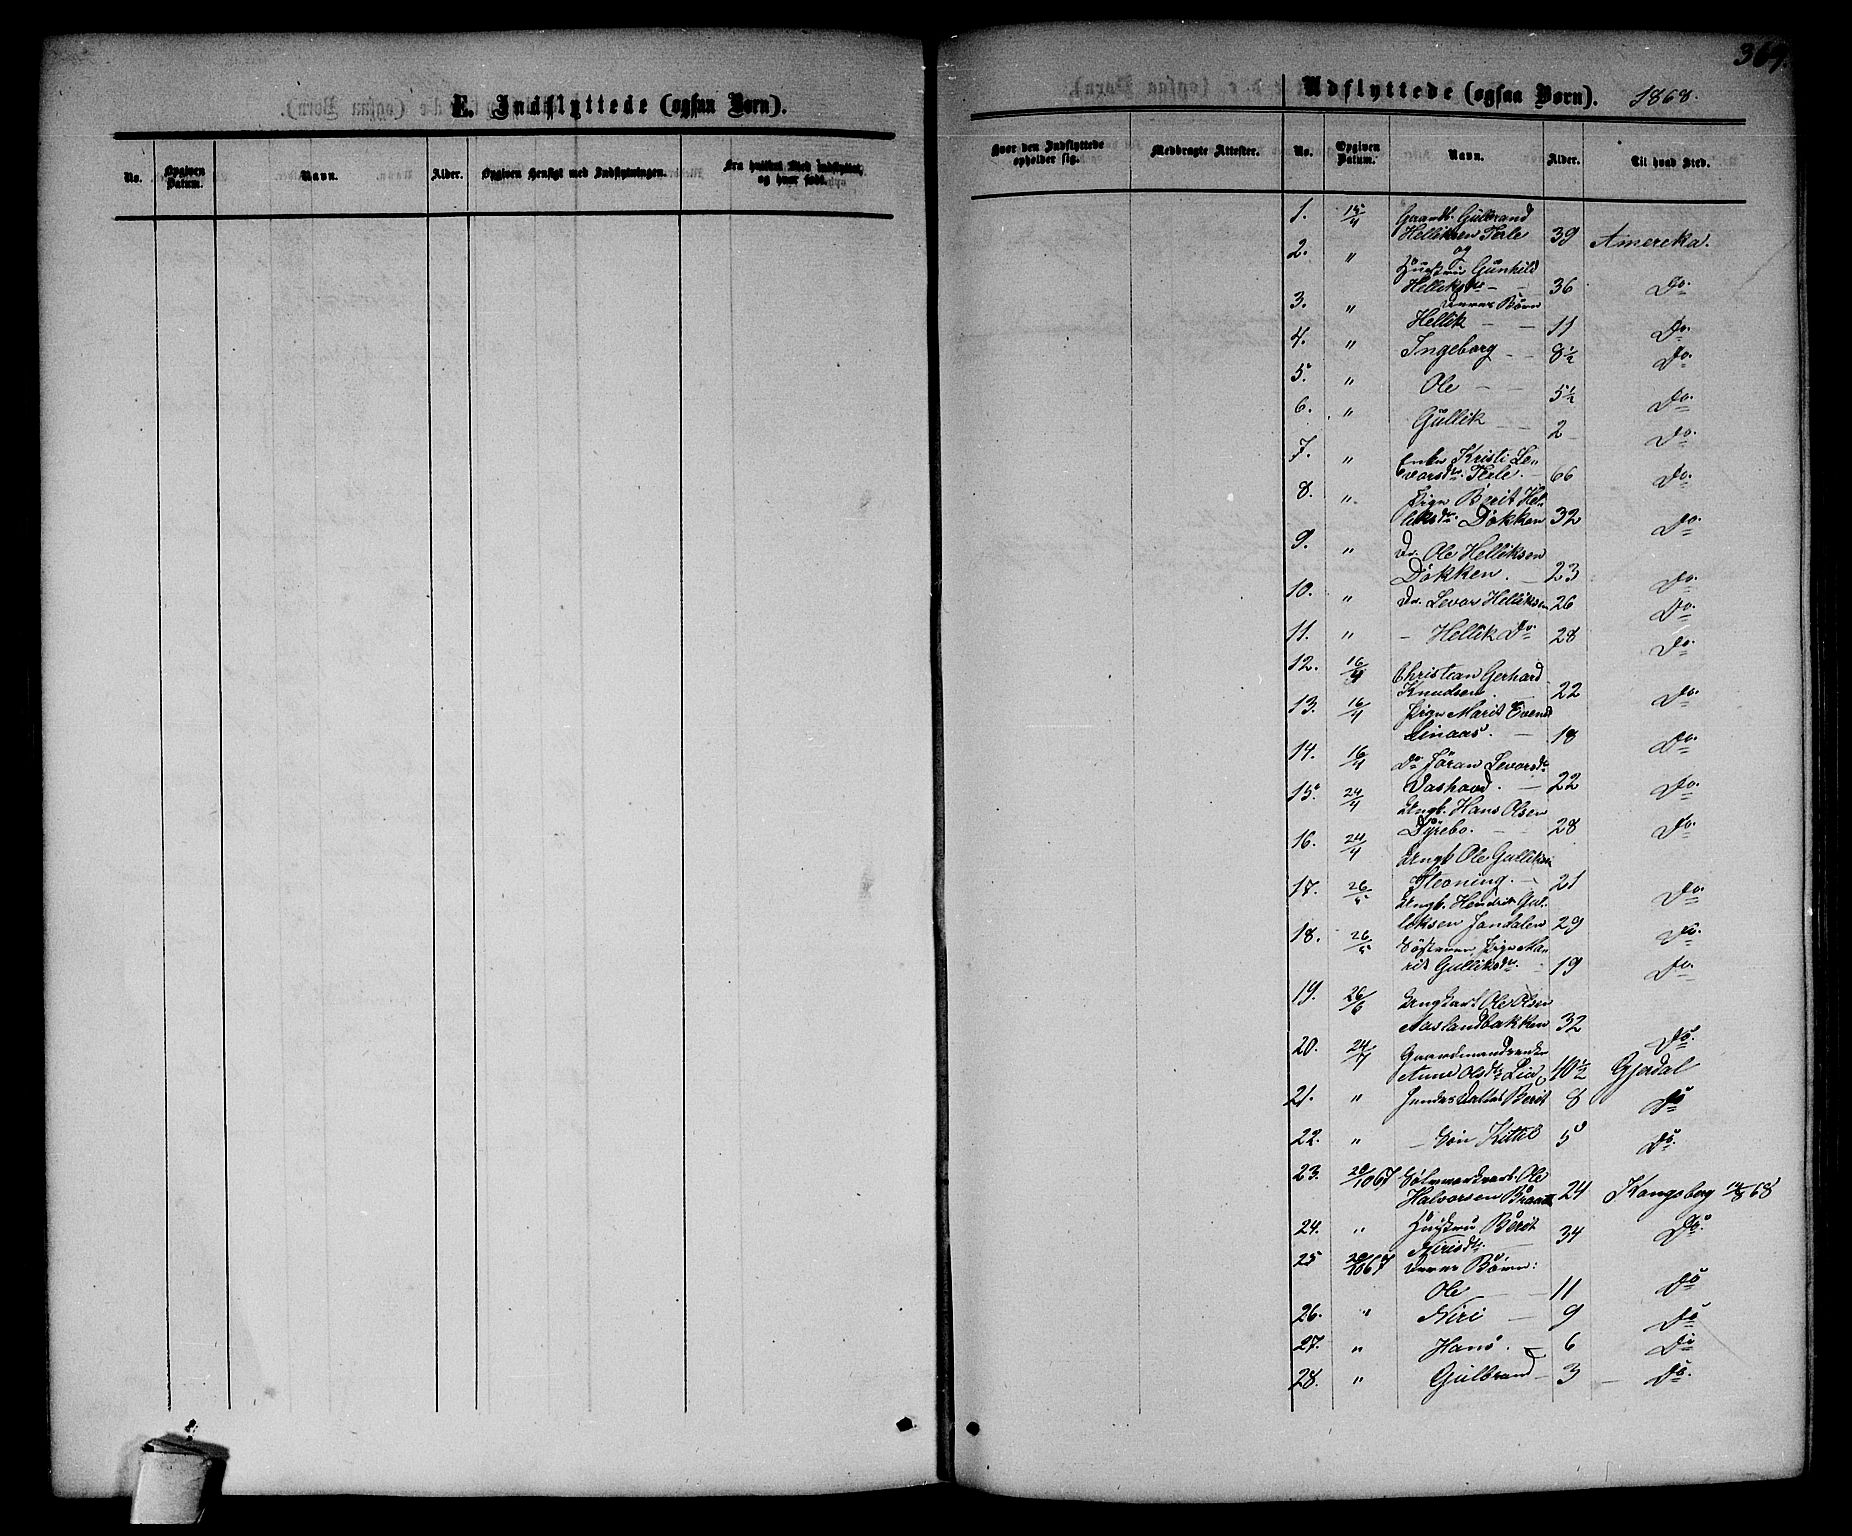 367
E. Indflyttede (ogsaa Børn).
No.
Opgiven Datum.
Navn.
Alder.
Opgiven Hensigt med Indflytningen.
Fra hvilket Sted indflyttet, og hvor født.
Udflyttede (ogsaa Børn). 1868.
Hvor den Indflyttede opholder sig.
Medbragte Attester.
No.
Opgiven Datum.
Navn.
Alder.
Til hvad Sted.
1. 15/4 Gaardb. Gulbrand
Helliksen Terle 39 Amereka.
2. " og
Hustru Gunhild
Helliksdr - 36 Do
3. " deres Børn
Hellik - - 11 Do.
4. " Ingeborg - - 8 1/2 Do.
5. " Ole - - 5 1/2 Do.
6. " Gullik - - 2 Do.
7. " Enke Kristi Le-
vorsdr. Terle. - 66 Do.
8. " Pige Berit Hel-
liksdr. Dokken 32 Do.
9. " Do. Ole Helliksen
Dokken. - 23 Do.
10. " Do. Levor Helliksen 26 Do.
11. " - Hellik Do 28 Do.
12. 16/4 Christian Gerhard
Knudsen. - 22 Do.
13. 16/4 Pige Marit Evensd
Linaas. - 18 Do.
14. 16/4 Do Jöran Levorsdr
Vashovd. - 22 Do.
15. 24/4 Ungk. Hans Olsen
Dyrebo. - 28 Do.
16. 24/4 Ungk. Ole Gulliksen
Stevning. - 21 Do.
17. 26/5 Ungk. Hendrik Gul-
liksen Jondalen 29 Do.
18. 26/5 Søsteren Pige Ma-
rit Gulliksdr. - 19 Do.
19. 26/6 Ungkarl Ole Olsen
Aaslandbakken 32 Do.
20. 24/7 Gaardmandsenke
Anne Olsdr Lia 40 1/2 Gjerdal
21. " Hendes Datter Berit 8 Do
22. " - Søn Kittil 5 Do.
23. 20/10 67 Sølvverksarb. Ole
Halvorsen Braate 24 Kongsberg 14/8 68
24. " Hustru Berit
Nirisdr. 34 Do.
25 20/10 67 deres Børn:
Ole - 11 Do
26. " Niri - 9 Do
27. " Hans. - 6 Do
28. " Gulbrand - 3 - Do.